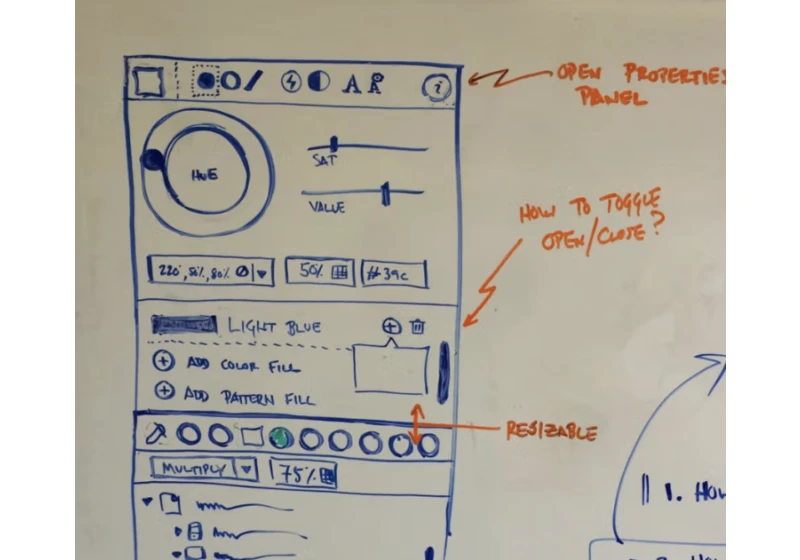 A A i
OPEN PROPERTIES
PANEL
HUE
SAT
VALUE
HOW TO TOGGLE
OPEN/CLOSE?
50%
#39c
LIGHT BLUE
ADD COLOR FILL
ADD PATTERN FILL
RESIZABLE
MULTIPLY
75%
1. HOW